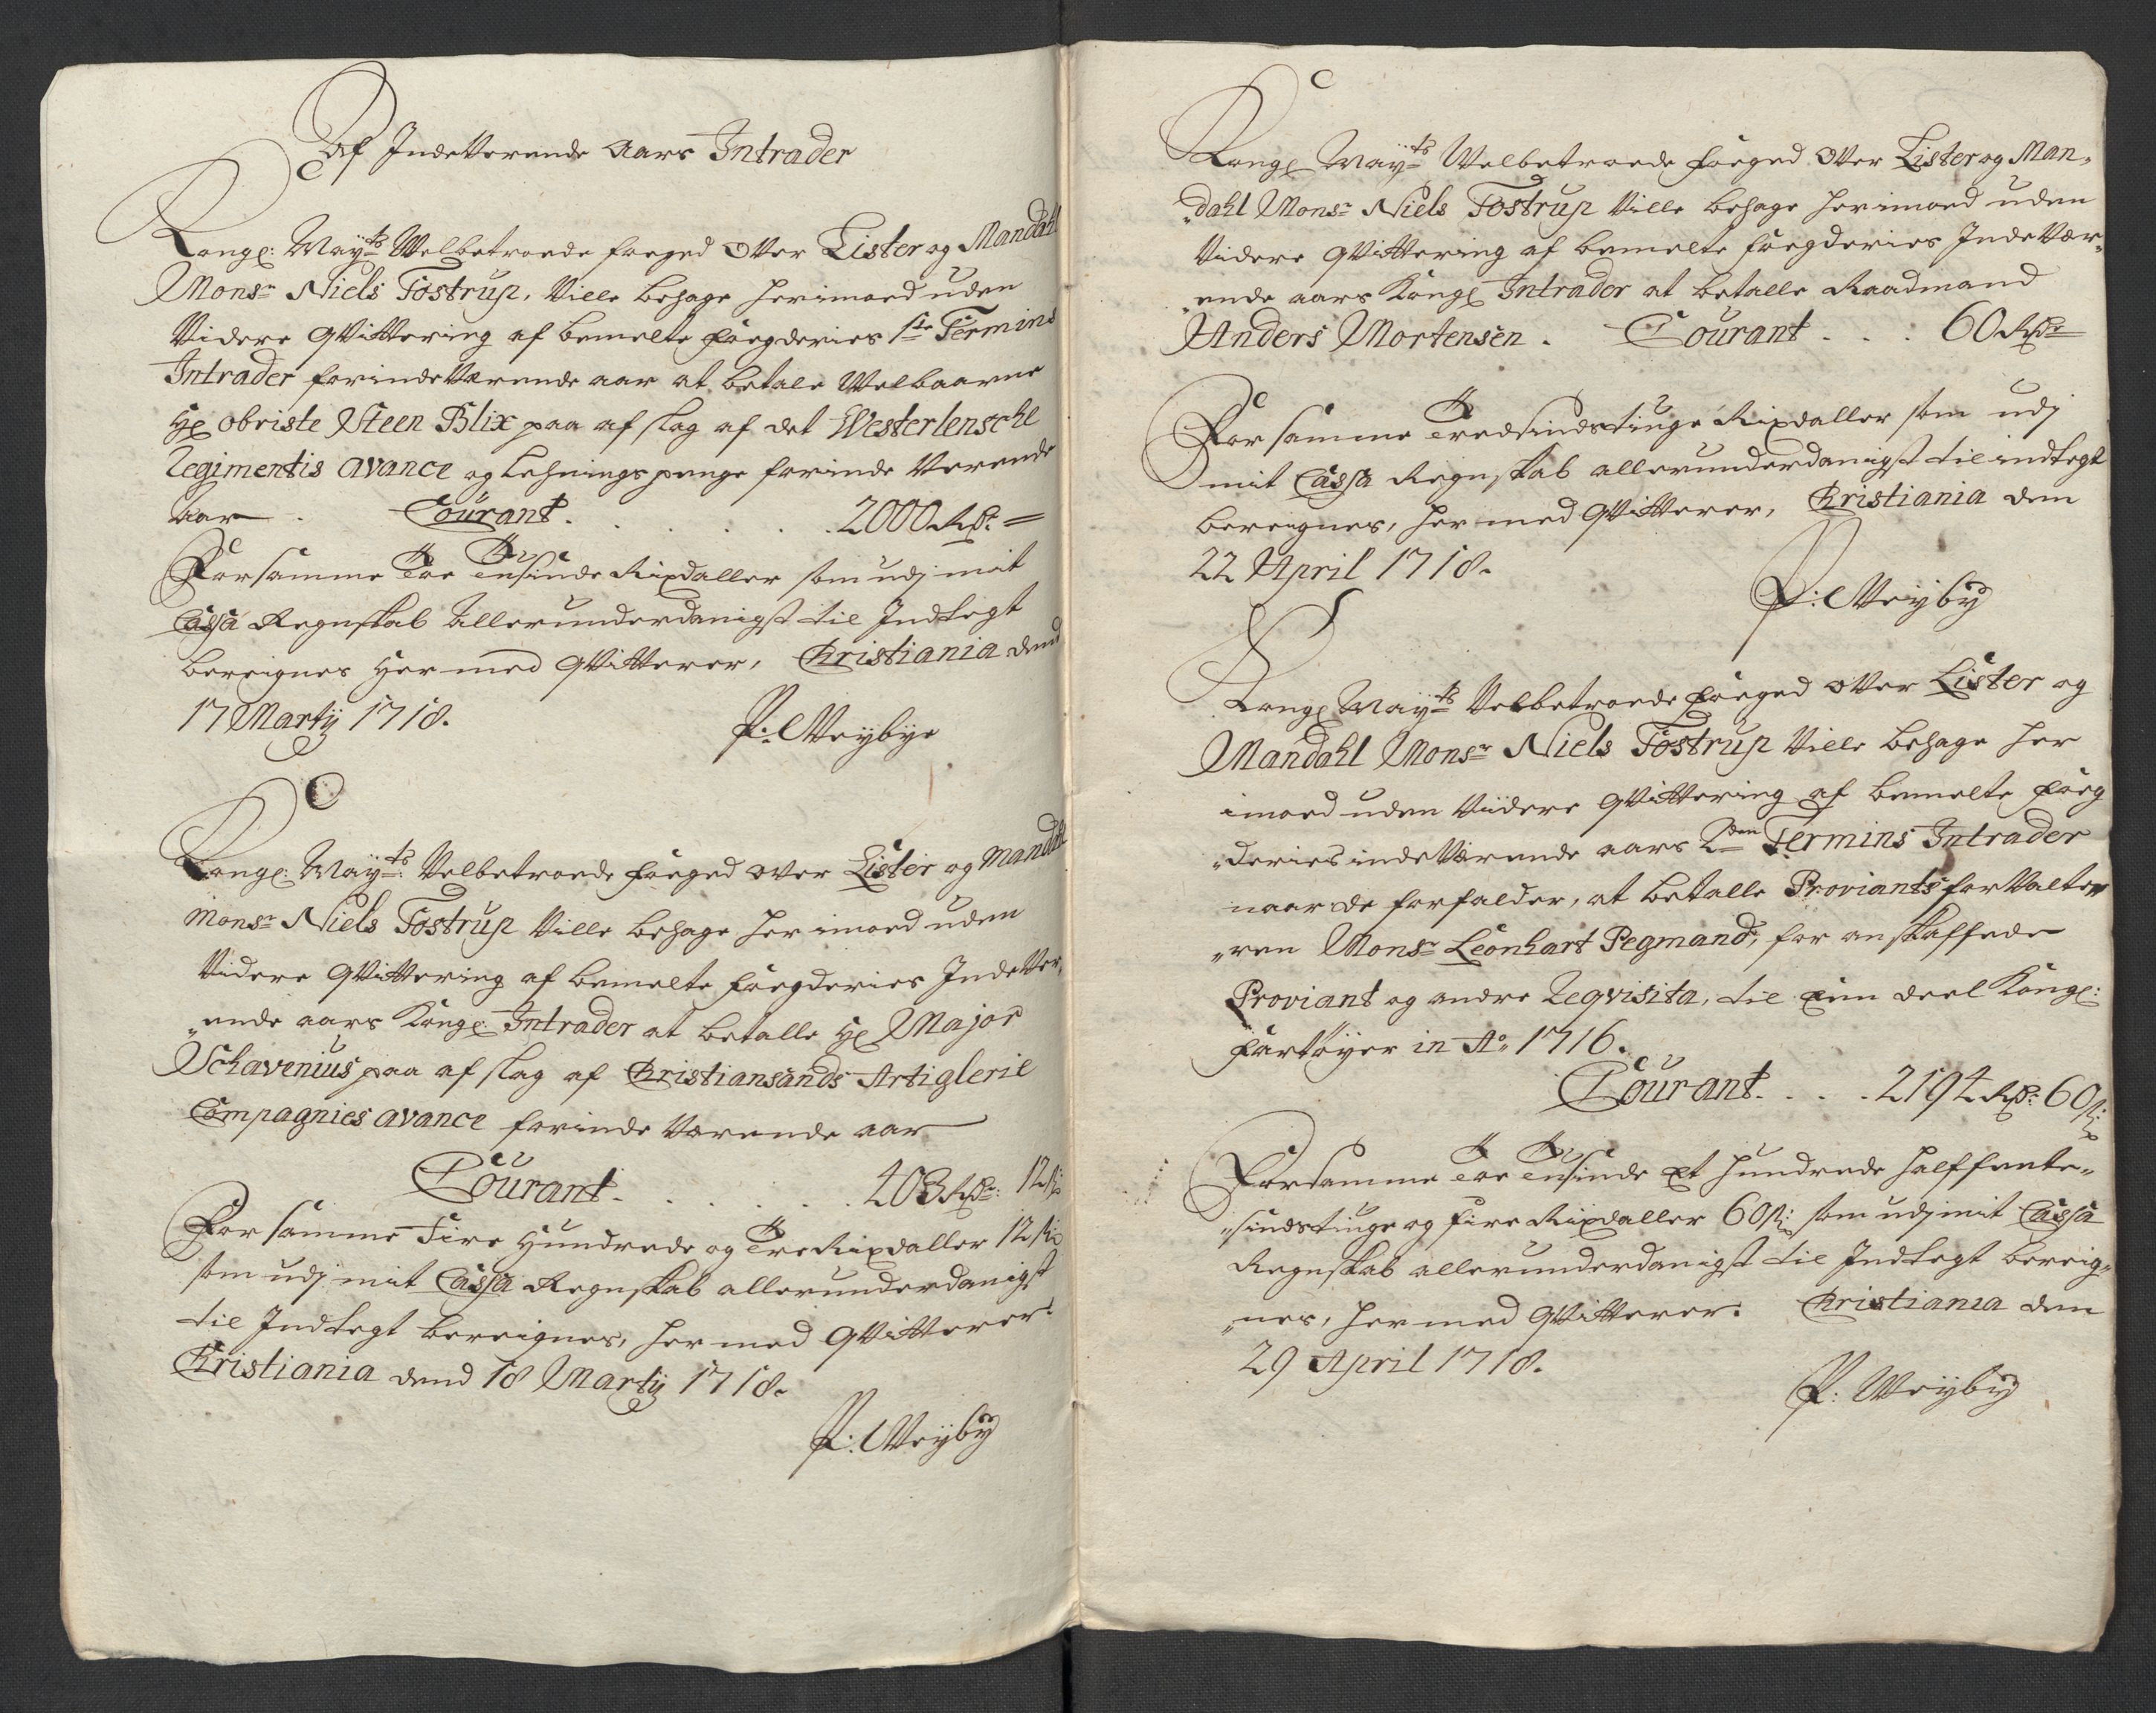 Af Indeverende Aars Intrader
Kongl: May:ts Welbetroede foged over Lister og Mandahl
Monsr Niels Tostrup, ville behage herimoed uden
videre qvittering af bemelte fogderies 1ste Termins
Intrader for indeværende aar at betale Welbaarne
Hr obriste Steen Blix paa afslag af det Westerlensche
Regimentis avance og Lehnings penge for inde verende
Aar. Courant. . . . . . 2000 Rdr =
For samme Toe Tusinde Rixdaller som udj mit
Cassa Regnskab Allerunderdanigst til Indtegt
bereignes Her med qvitterer, Christiania dend
17 Martij 1718.
P: Weybye
Kongl: May:ts Velbetroede foged over Lister og Mandahl
Monsr Niels Tostrup ville behage her imoed uden
videre qvittering af bemelte fogderies Indever-
„ende aars Kongl: Intrader at betalle Hr Major
Schavenius paa afslag af Christiansands Artiglerie
Compagnies avance for inde værende aar
Courant. . . . . . 403 Rdr: 12 s:
For samme Fire Hundrede og Tre Rixdaller 12 s:
som udj mit Cassa Regnskab allerunderdanigst
til Indtegt bereignes, her med qvitterer.
Christiania dend 18 Martij 1718.
P: Weyby
Kongl May:ts Welbetroede foged over Lister og Man-
„dahl Monsr Niels Tostrup ville behage herimoed uden
videre qvittering af bemelte fogderies Indevær-
„ende aars Kongl Intrader at betalle Raadmand
Anders Mortensen. Courant . . . 60 Rdr
For samme Tredsindstiuge Rixdaller som udj
mit Cassa Regnskab allerunderdanigst til indtegt
bereignes, her med qvitterer, Christiania den
22 April 1718.
P: Weyby
Kongl May:ts Velbetroede foged over Lister og
Mandahl Monsr Niels Tostrup ville behage her
imoed uden videre qvittering af bemelte fog
„deries indeværende aars 2den Termins Intrader
naar de forfalder, at betalle Proviants forvalte„
„ren Monsr Leonhart Pegmand, for anskaffede
Proviant og andre Reqvisita, til een deel Kongl:
fartøyer in Ao 1716.
Courant. . . . 2194 Rdr: 60 s:
For samme Toe Tusinde Et hundrede halffemte„
„sindstiuge og fire Rixdaller 60 s: som udj mit Cassa
Regnskab allerunderdanigst til Indtegt bereig„
„nes, her med qvitterer. Christiania den
29 April 1718.
P: Weyby